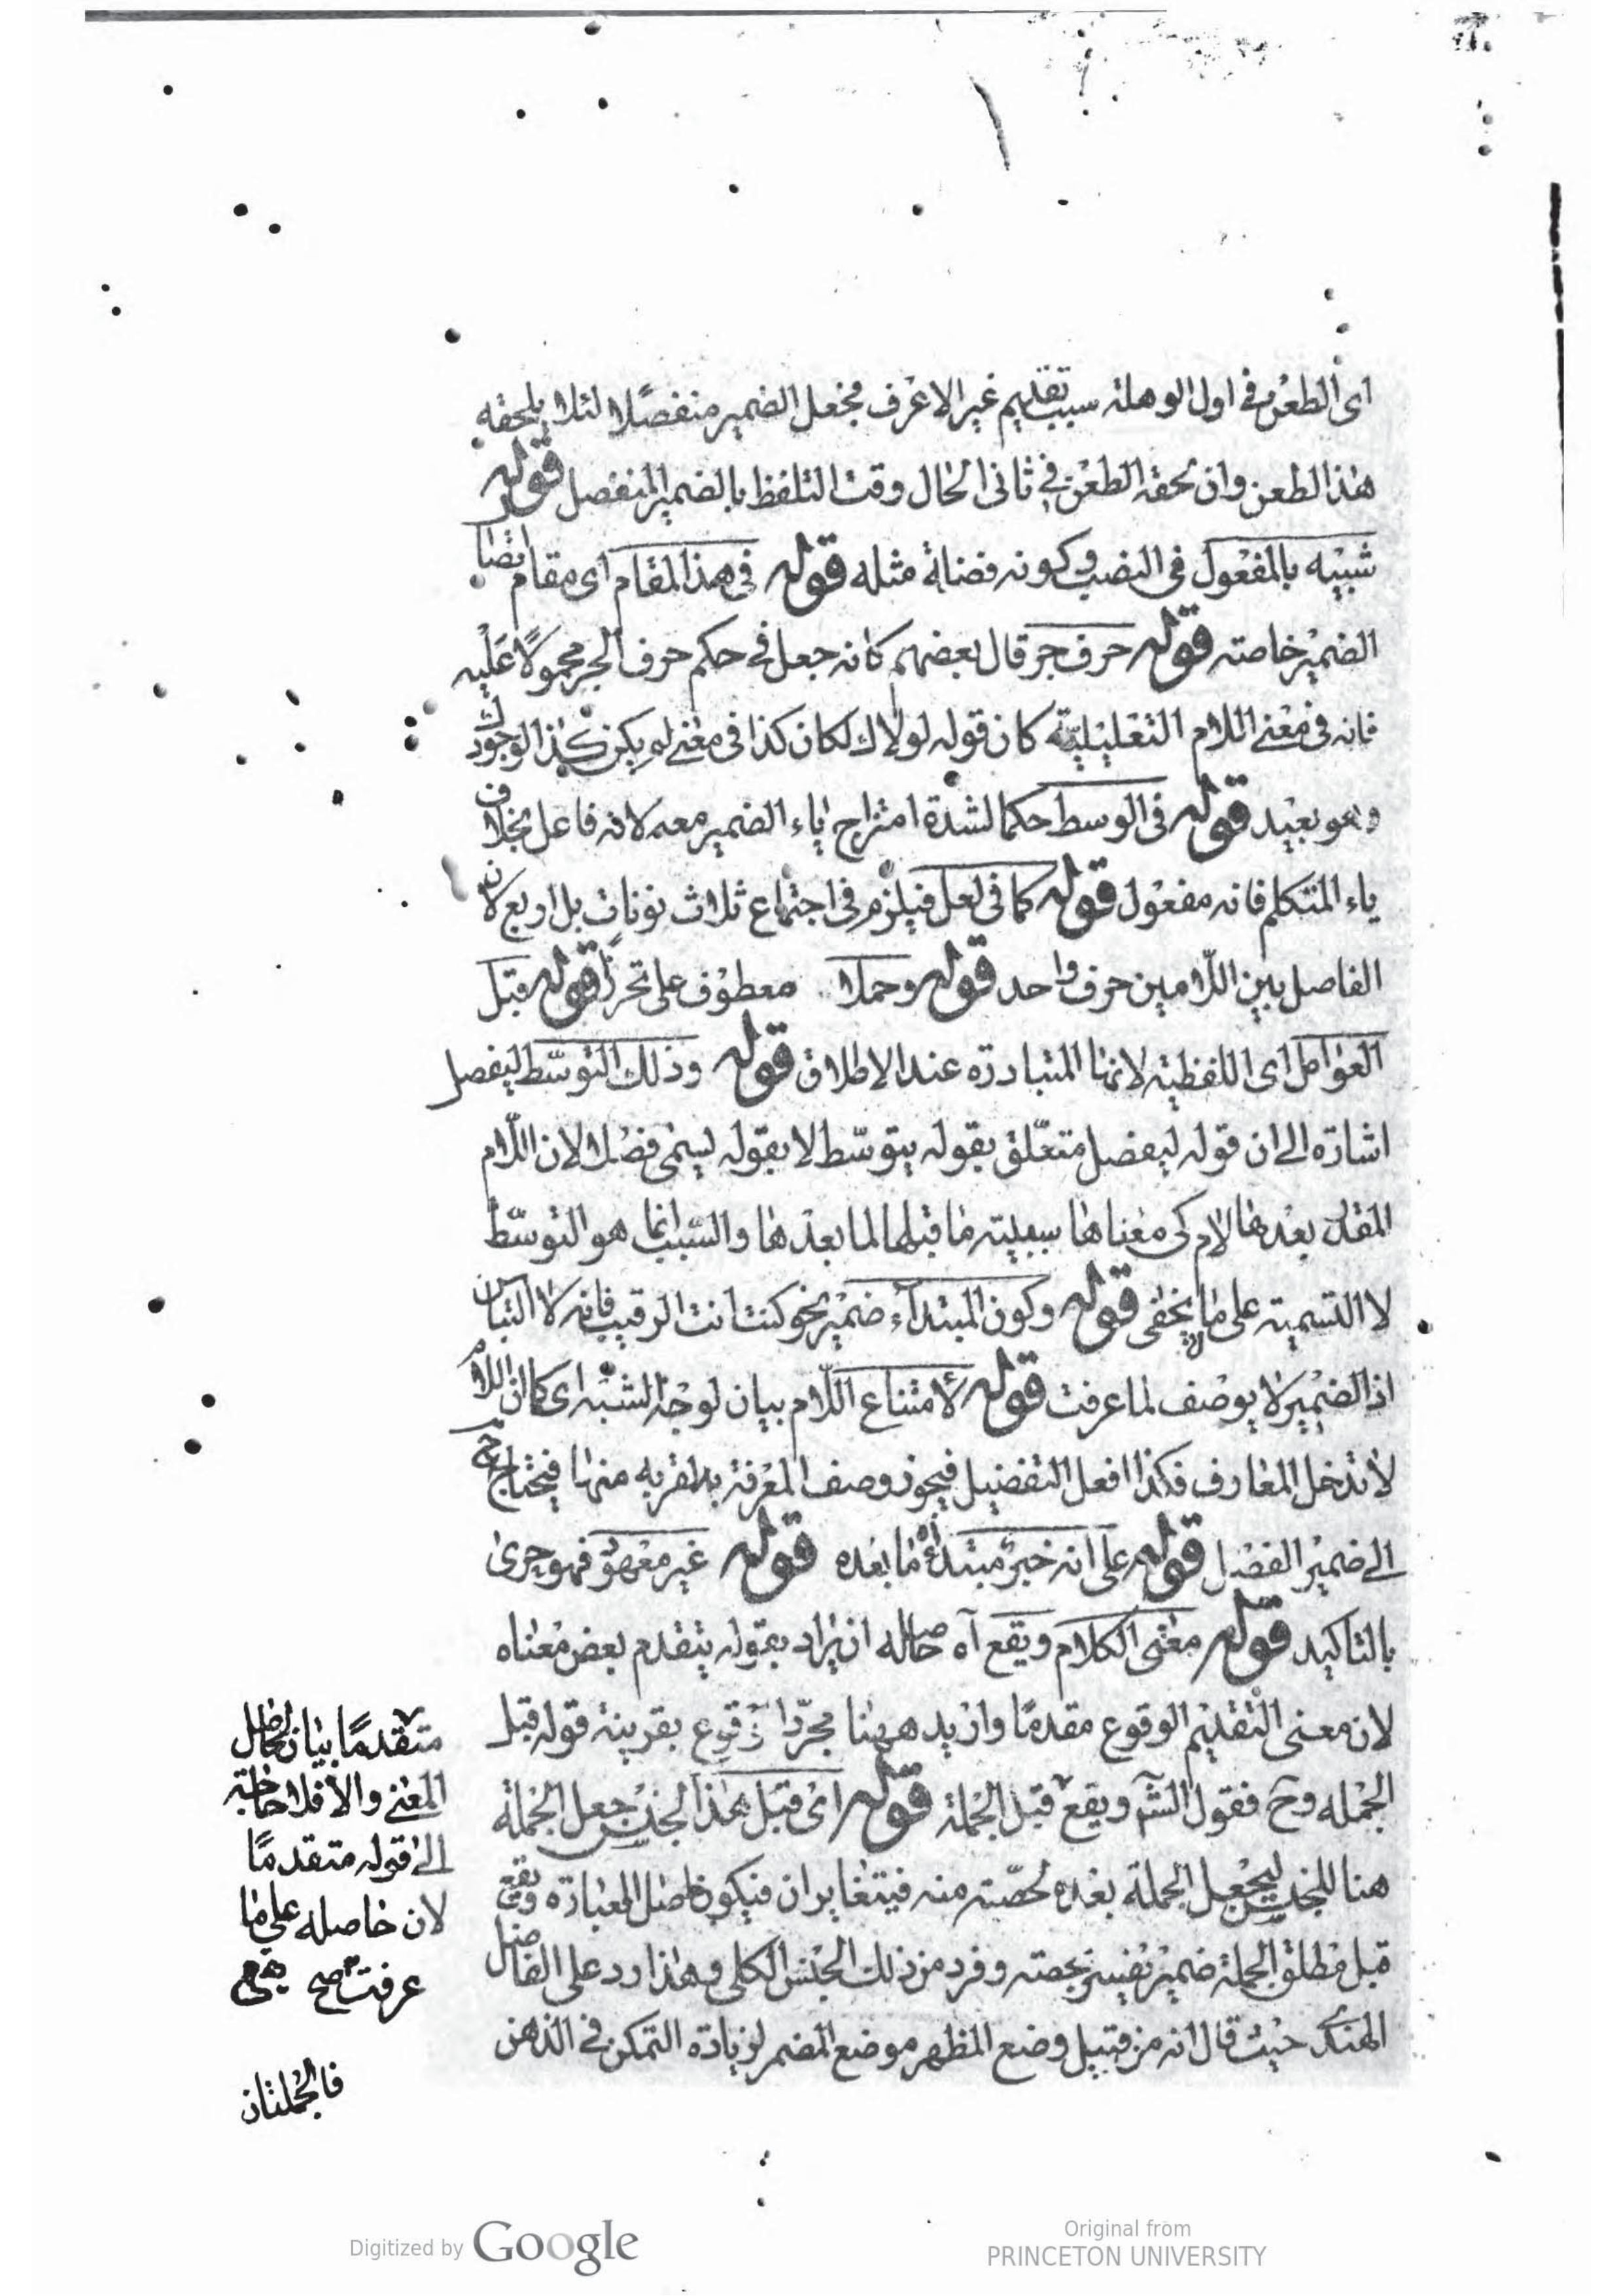 اى الطعن فى اول الوهلة سبب تقديم غير الاعرف فجعل الضمير منفصلا لئلا يلحقه
هذا الطعن وان لحقه الطعن فى ثانى الحال وقت التلفظ بالضمير المنفصل قوله
شبيه بالمفعول فى النصب وكونه فضلة مثله قوله فى هذا المقام اى مقام اتصال
الضمير خاصته قوله حرف جر قال بعضهم كانه جعل فى حكم حرف الجر محمولا عليه
فانه فى معنى اللام التعليلية كان قوله لولاك لكان كذا فى معنى لم يكن كذا لوجودك
وهو بعيد قوله فى الوسط حكما لشدة امتزاج ياء الضمير معه لانه فاعل بخلاف
ياء المتكلم فانه مفعول قوله كما فى لعل فيلزم فى اجتماع ثلاث نونات بل اربع لان
الفاصل بين اللامين حرف واحد قوله وحملا معطوف على تحرزا قوله قبل
العوامل اى اللفظية لانها المتبادرة عند الاطلاق قوله وذلك التوسط ليفصل
اشارة الى ان قوله ليفصل متعلق بقوله يتوسط لا بقوله يسمى فصلا لان اللام
المقدر بعدها لام كى معناها سببية ما قبلها لما بعدها والسبب انما هو التوسط
لا التسمية على ما لا يخفى قوله وكون المبتدآء ضمير نحو كنت انت الرقيب فانه لا التباس
اذ الضمير لا يوصف لما عرفت قوله لامتناع اللام بيان لوجه الشبه اى كما ان اللام
لا تدخل المعارف فكذا افعل التفضيل فيجوز وصف المعرفة به لقربه منها فيحتاج ح
الى ضمير الفصل قوله على انه خبر مبتدأه ما بعده قوله غير معهود فهو حرى
بالتاكيد قوله معنى الكلام ويقع آه حاصله ان يراد بقوله يتقدم بعض معناه
لان معنى التقديم الوقوع مقدما واريد ههنا مجردا لوقوع بقرينة قوله قبل
الجمله وح فقول الش ويقع قبل الجملة قوله اى قبل هذا الجنس جعل الجملة
هنا للجنس ليجعل الجملة بعده لحصته منه فيتغايران فيكون حاصل العبارة ويقع
قبل مطلق الجملة ضمير تفسيره بحصته وفرد من ذلك الجنس الكلى وهذا رد على الفاضل
الهندى حيث قال انه من قبيل وضع المظهر موضع المضمر لزيادة التمكن فى الذهن
متقدما بيان لحاصل
المعنى والا فلا حاجة
الى قوله متقدما
لان حاصله على ما
عرفت صح
فالجملتان
Digitized by Google
Original from
PRINCETON UNIVERSITY